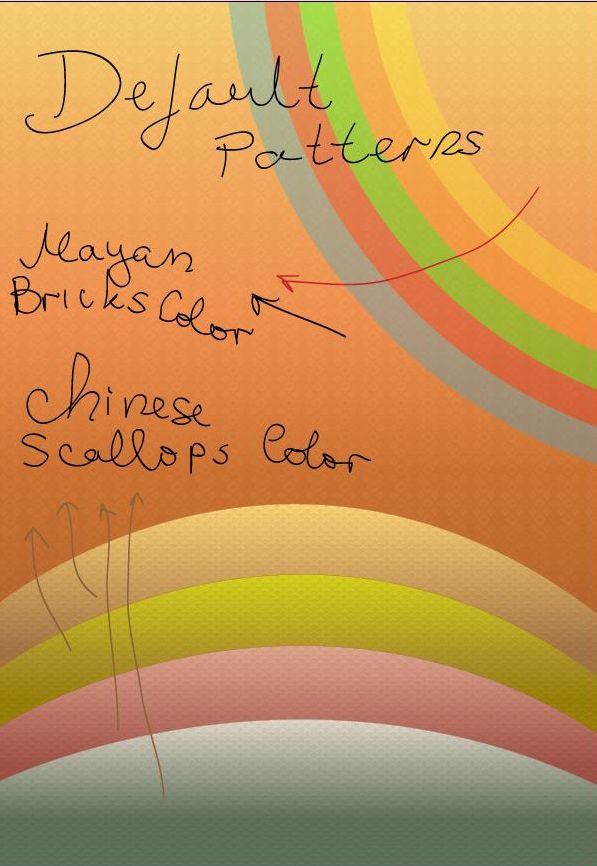 Default
Patterns
Mayan
Bricks Color
Chinese
Scallops Color